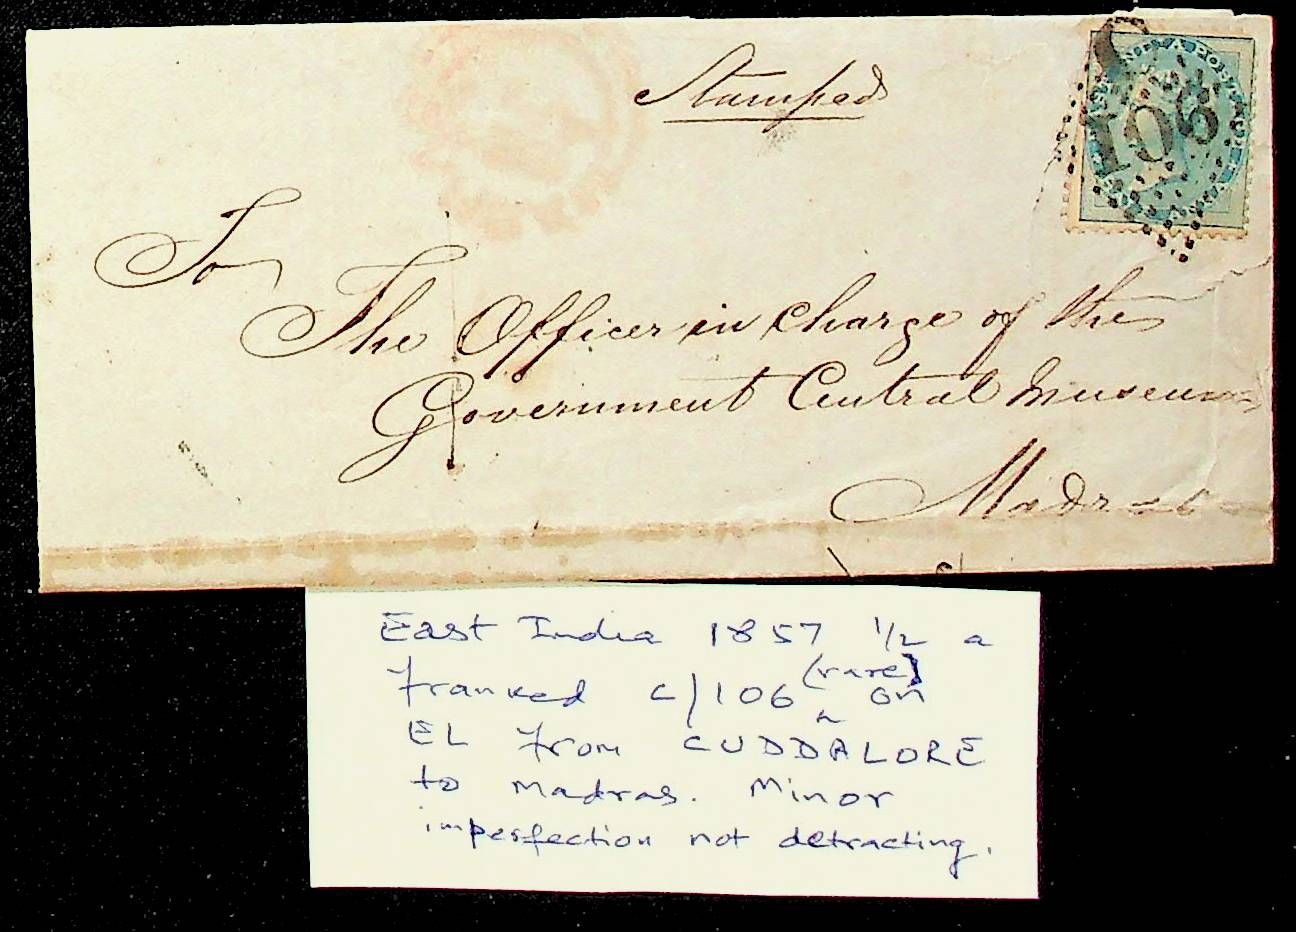 Stamped
C
106
To
The Officer in charge of the
Government Central Museum
Madras
East India 1857 1/2 a
franked C/106 (rare) on
EL from CUDDALORE
to Madras. Minor
imperfection not detracting.